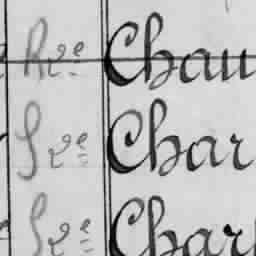 Rve Chau
Sve Char
Sve Char